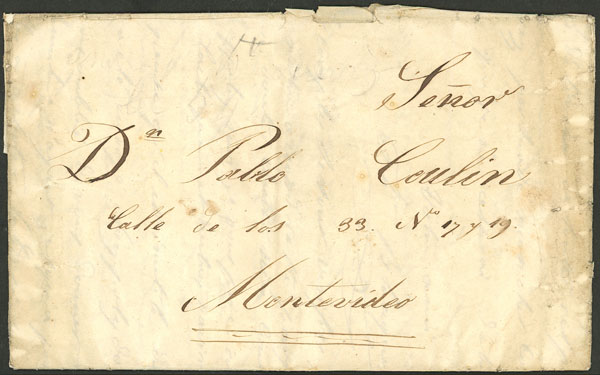 Señor
Dn Pablo Coulin
Calle de los 33. No 17 y 19.
Montevideo